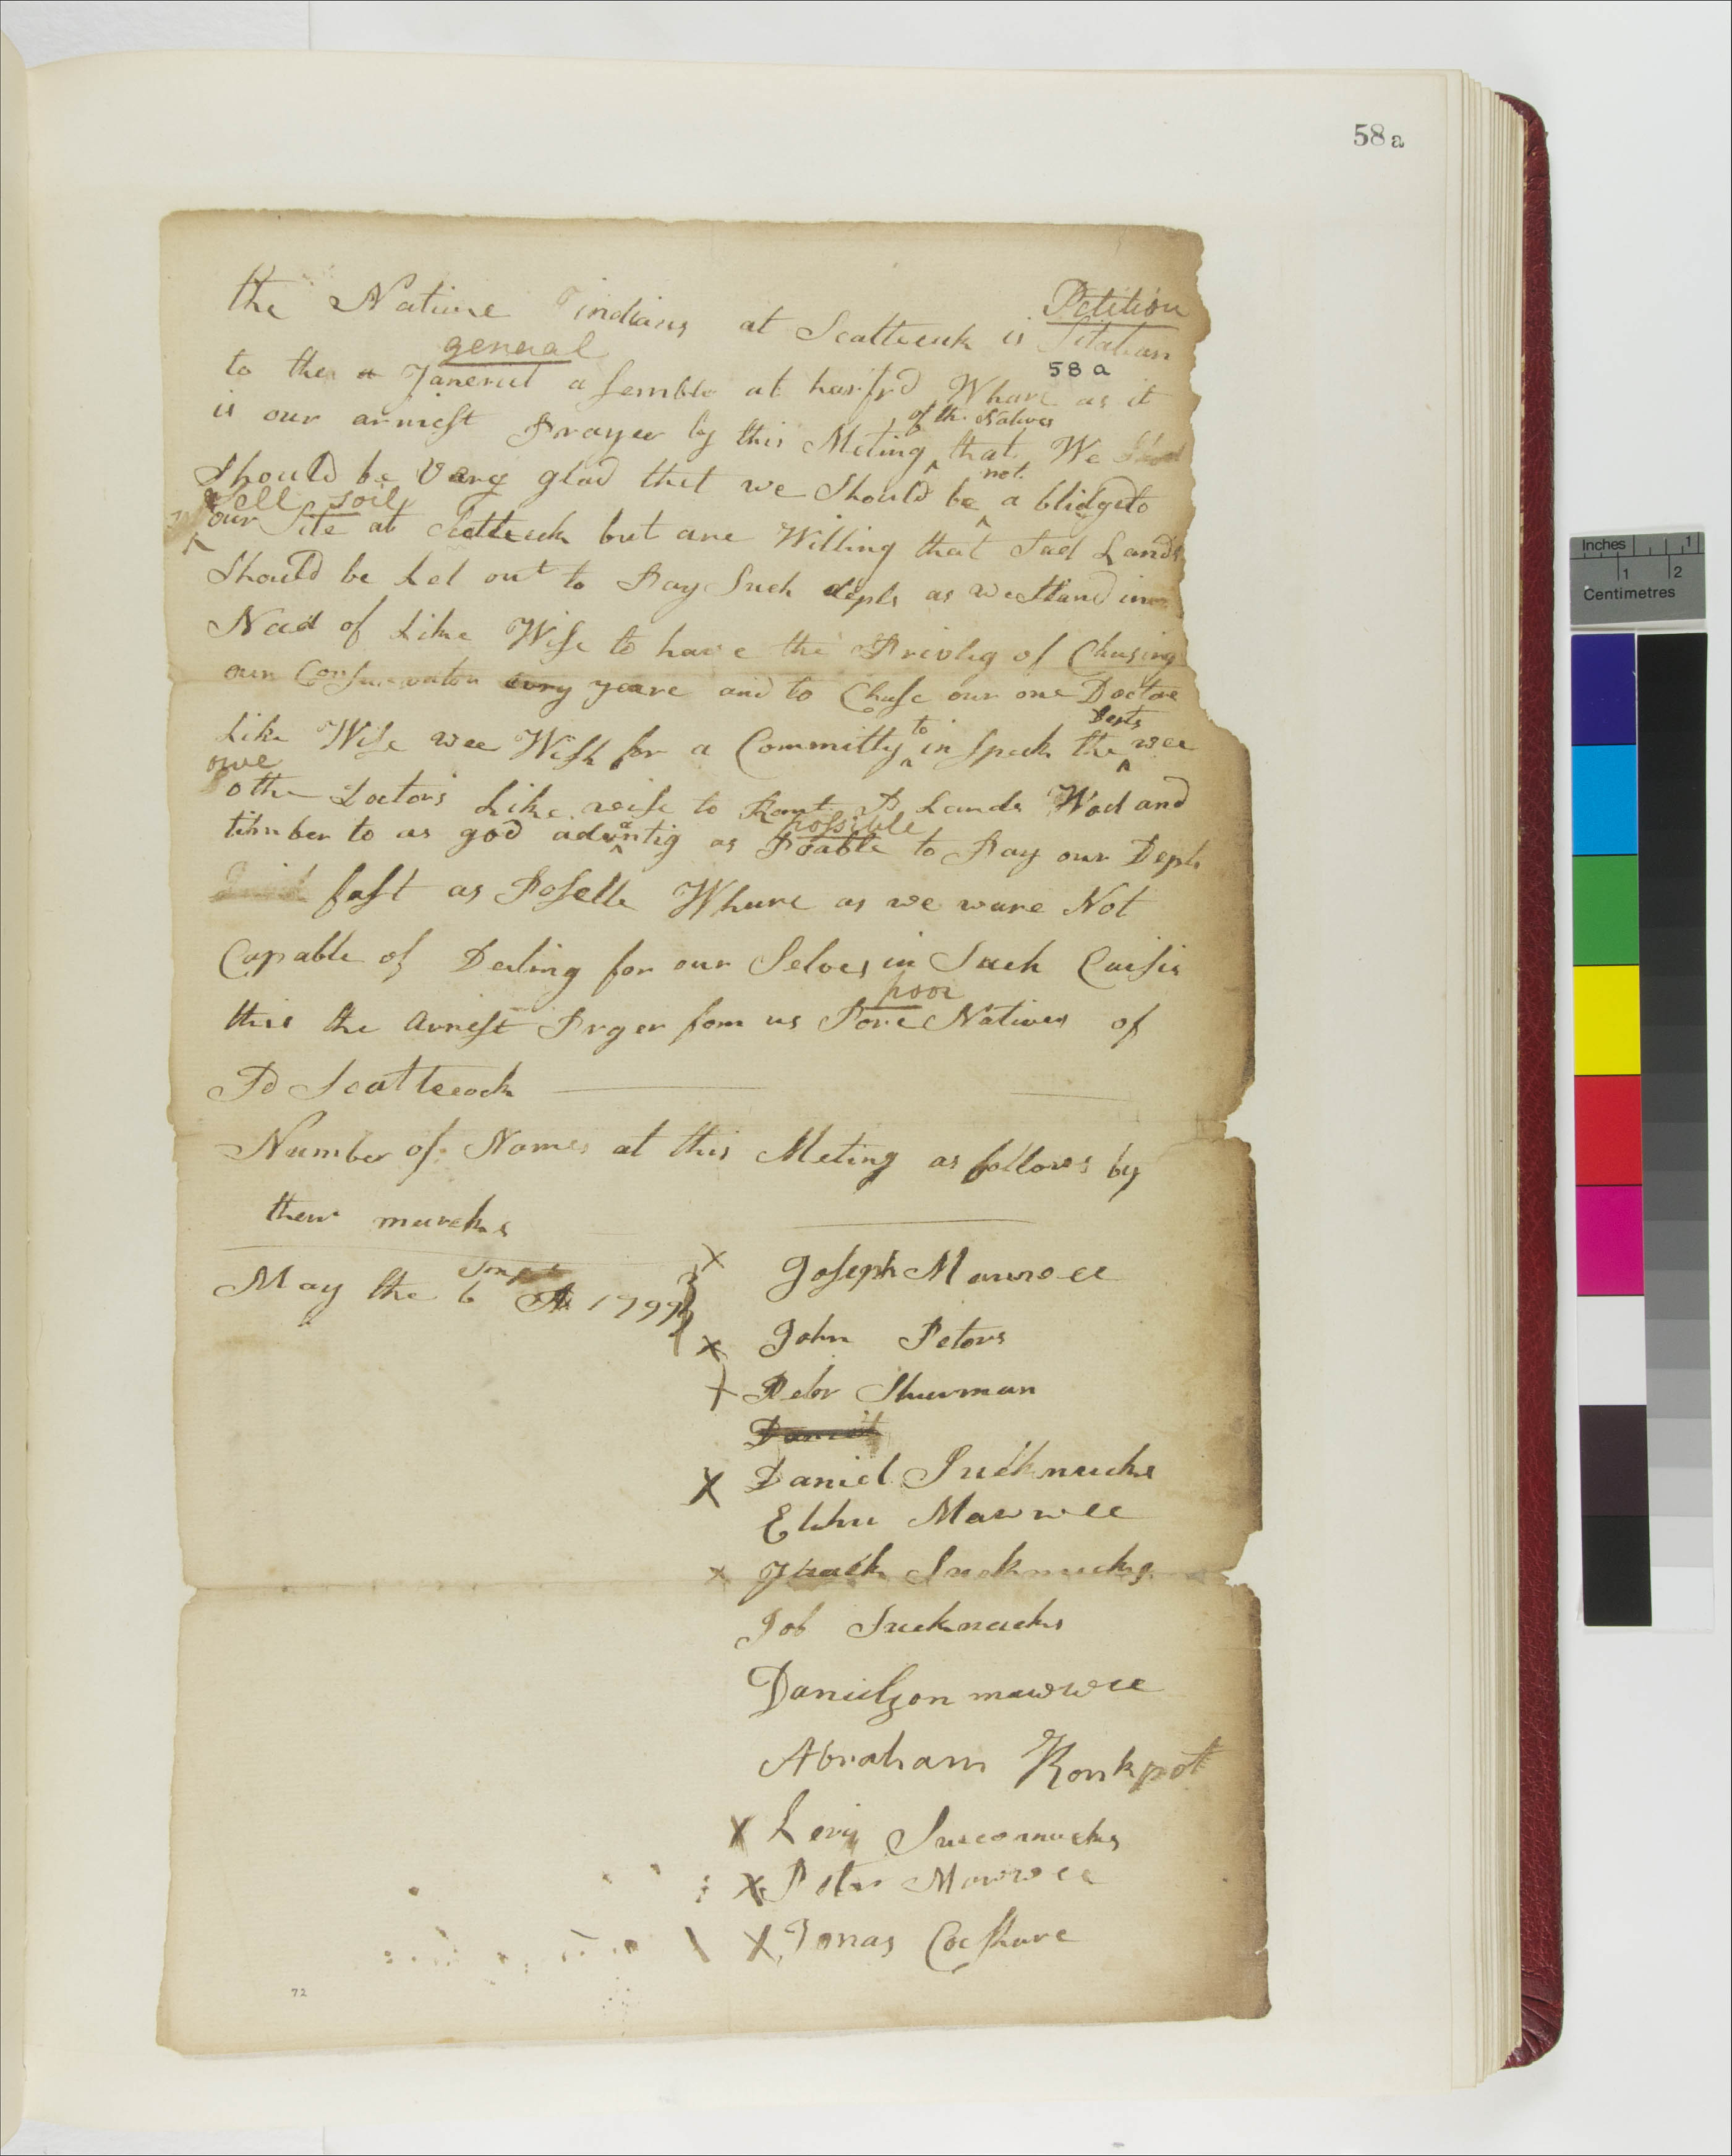 58a
Petition
the Native indians at Scatticuk is Pitahan
general
58 a
to the Janeriel a semble at harfrd Whare as it
of the Natives
is our arniest Prayer by this Meting ^ that We
not
Should be Vary glad thet we Should be ^ a blidgeto
sell soil
^ our Sile at Scatticuk but are Willing that Sad Lands
Should be Let out to Pay Such depts as we Stand in
Nead of Like Wise to have the Privleg of Chusing
our every yeare and to Chuse our one Doctore
to Depts
Like Wise wee Wish for a Committy ^ in Speck the ^ wee
owe
othe Doctors Like wise to Rent Lands Wod and
possible
timber to as god advantig as Poable to Pay our Depts
fast as Poselle Whare as we ware Not
Capable of Deling for our Selves in Such Caisis
poor
this the arnest Prger fom us Pore Natives of
Sd Scattecock
Number of Names at this Meting as follows by
thew marcks
May the 6 1799
x Joseph Mawwee
x John Peters
x Peter Shurman
x Daniel Sucknucks
Elihu Mawwee
x Sucknucks
Job Sucknucks
Danielson mawwee
Abraham Konkpot
x Levy Succonucks
x Peter Mawwee
x Jonas Cocksure
72
Inches 1
1 2
Centimetres